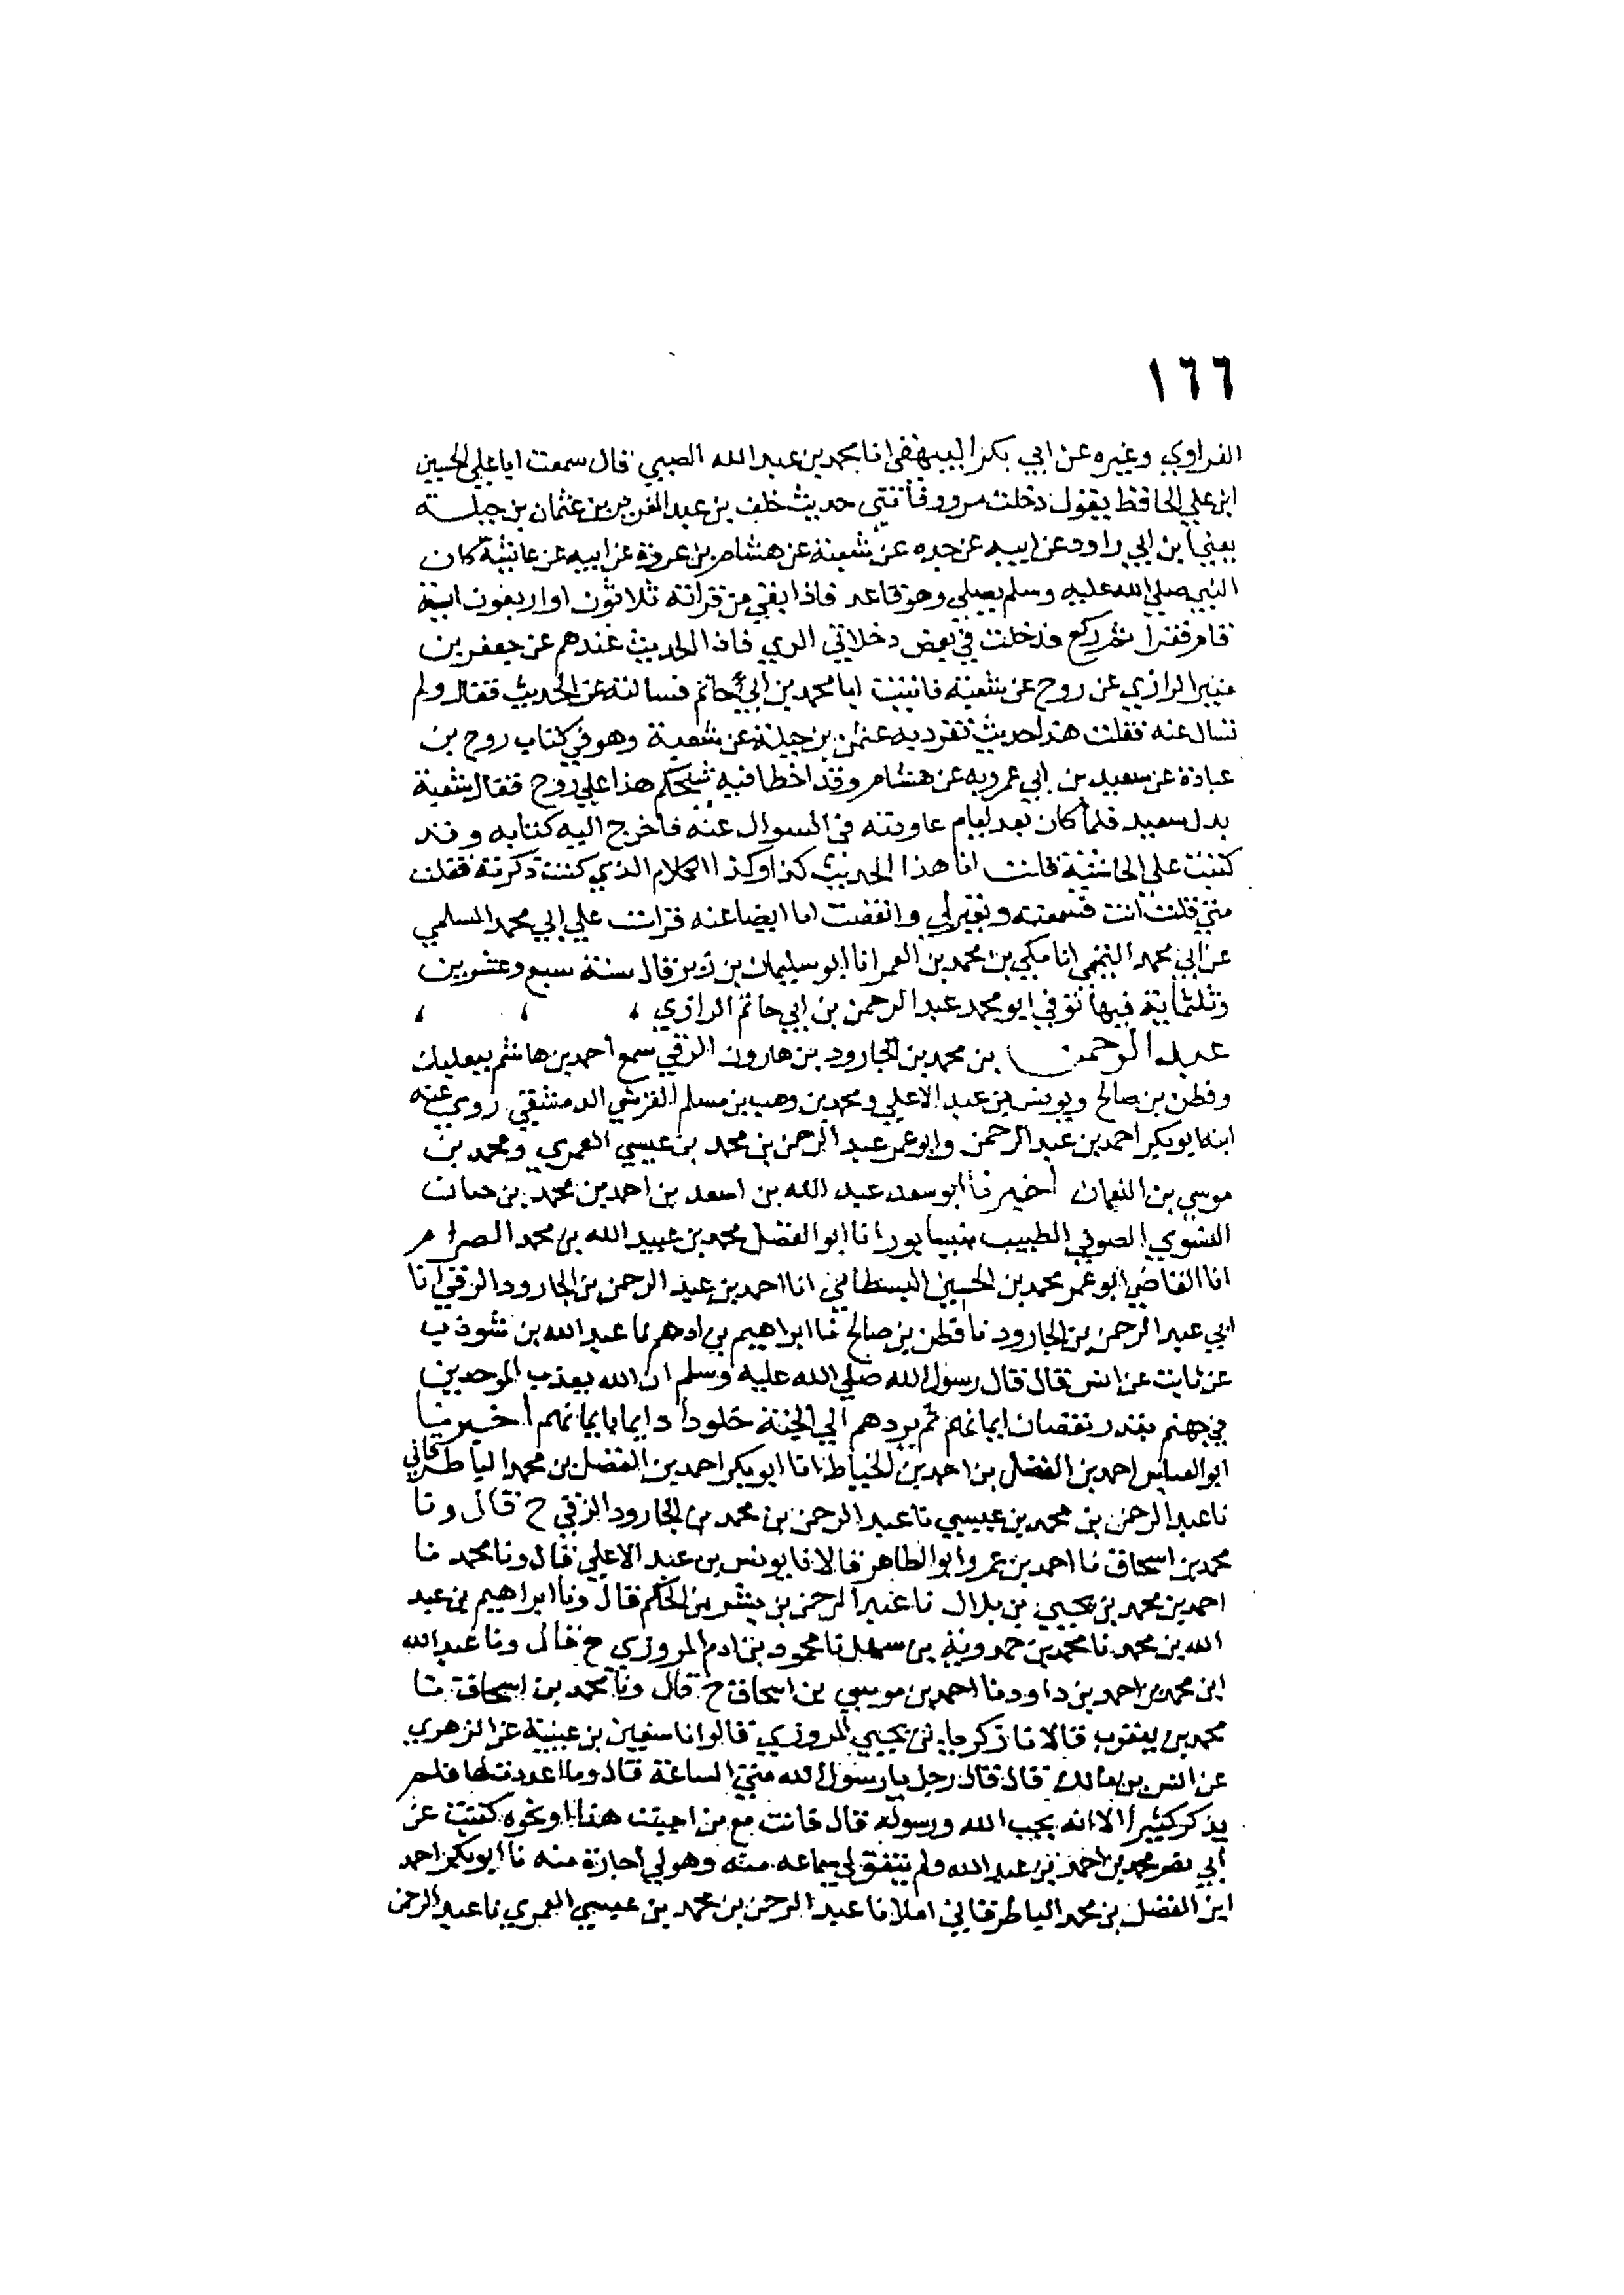 ١٦٦
الفراوي وغيره عن ابي بكر البيهقي انا محمد بن عبد الله الضبي قال سمعت ابا علي الحسين
ابن علي الحافظ يقول دخلت مرو وفاتني حديث خلف بن عبد العزيز بن عثمان بن جبلة
يعني ابن ابي راود عن ابيه عن جده عن شعبة عن هشام بن عروة عن ابيه عن عائشة كان
النبي صلى الله عليه وسلم يصلي وهو قاعد فاذا بقي من قراته ثلاثون او اربعون اية
قام فقرا ثم ركع فدخلت في بعض دخلاتي الري فاذا الحديث عندهم عن جعفر بن
منير الرازي عن روح عن شعبة فاتيت ابا محمد بن ابي حاتم فسالته عن الحديث فقال ولم
تسال عنه فقلت هذا حديث تفرد به عثمن بن جبلة عن شعبة وهو في كتاب روح بن
عبادة عن سعيد بن ابي عروبه عن هشام وقد اخطا فيه شيخكم هذا علي روح فقال شعبة
بدل سعيد فلما كان بعد ايام عاودته في السوال عنه فاخرج اليه كتابه وقد
كتبت على الحاشية قلت انا هذا الحديث كذا وكذا الكلام الذي كنت ذكرته فقلت
متى قلت انت فسمعته وتغير لي وانقضت اما ايضا عنه قرات علي ابي محمد السلمي
عن ابي محمد التميمي انا مكي بن محمد بن الغمر انا ابو سليمان بن زبر قال سنة سبع وعشرين
وثلثماية فيها توفي ابو محمد عبد الرحمن بن ابي حاتم الرازي ،
عبد الرحمن بن محمد بن الجارود بن هارون الرقي سمع احمد بن هاشم ببعلبك
وقطن بن صالح ويونس بن عبد الاعلي ومحمد بن وهب بن مسلم القرشي الدمشقي روي عنه
ابنه ابو بكر احمد بن عبد الرحمن وابو عمر عبد الرحمن بن محمد بن عيسي العمري ومحمد بن
موسي بن النعمان اخبرنا ابو سعد عبد الله بن اسعد بن احمد بن محمد بن حيان
النسوي الصوفي الطبيب بنيسابور انا ابو الفضل محمد بن عبيد الله بن محمد الصرام
انا القاضي ابو عمر محمد بن الحسين البسطامي انا احمد بن عبد الرحمن بن الجارود الرقي انا
ابي عبد الرحمن بن الجارود نا قطن بن صالح نا ابراهيم بن ادهم نا عبد الله بن شوذب
عن ثابت عن انس قال قال رسول الله صلي الله عليه وسلم ان الله يعذب الموحدين
في جهنم بقدر نقصان ايمانهم ثم يردهم الي الجنة خلودا دايما بايمانهم اخبرنا
ابو العباس احمد بن الفضل بن احمد بن الخياط انا ابو بكر احمد بن الفضل بن محمد الباطرقاني
نا عبد الرحمن بن محمد بن عيسي نا عبد الرحمن بن محمد بن الجارود الرقي ح قال ونا
محمد بن اسحاق نا احمد بن عمرو ابو الطاهر قالا نا يونس بن عبد الاعلي قال ونا محمد نا
احمد بن محمد بن يحيي بن بلال نا عبد الرحمن بن بشر بن الحكم قال ونا ابراهيم بن عبد
الله بن محمد نا محمد بن حمدوية بن سهل نا محمود بن ادم المروزي ح قال ونا عبد الله
ابن محمد بن احمد بن داود نا احمد بن موسي بن اسحاق ح قال ونا محمد بن اسحاق نا
محمد بن يعقوب قالا نا زكريا بن يحيي المروزي قالوا نا سفين بن عيينة عن الزهري
عن انس بن مالك قال قال رجل يا رسول الله متي الساعة قال وما اعددت لها فلم
يذكر كثيرا الا انه يحب الله ورسوله قال فانت مع من احببت هذا او نحوه كتبت عن
ابي نصر محمد بن احمد بن عبد الله ولم يتفق لي سماعه منه وهو لي اجازة منه نا ابو بكر احمد
ابن الفضل بن محمد الباطرقاني املا نا عبد الرحمن بن محمد بن عيسي العمري نا عبد الرحمن